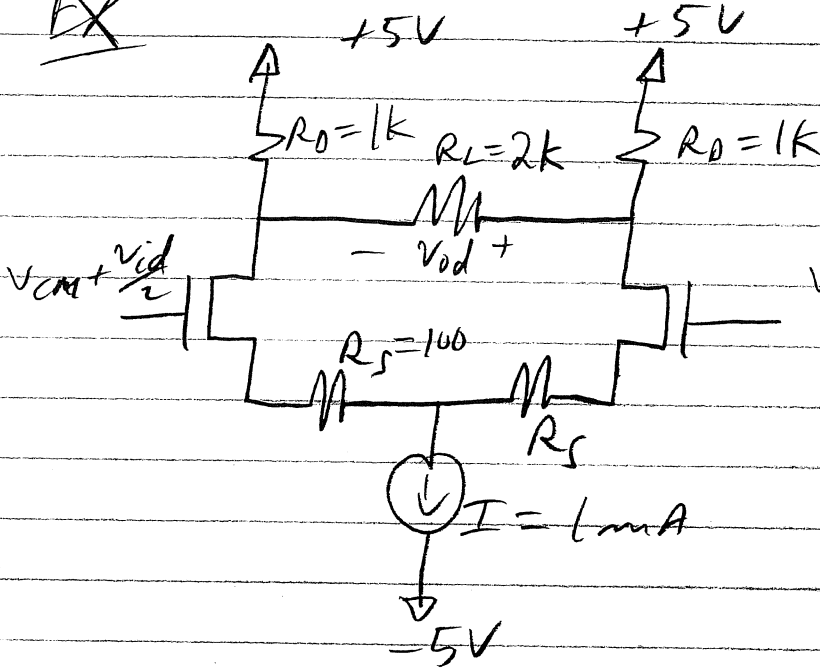 EX
+5V +5V
R_D=1k R_L=2k R_D=1k
- v_od +
V_CM+v_id/2
R_S=100
R_S
I=1mA
-5V